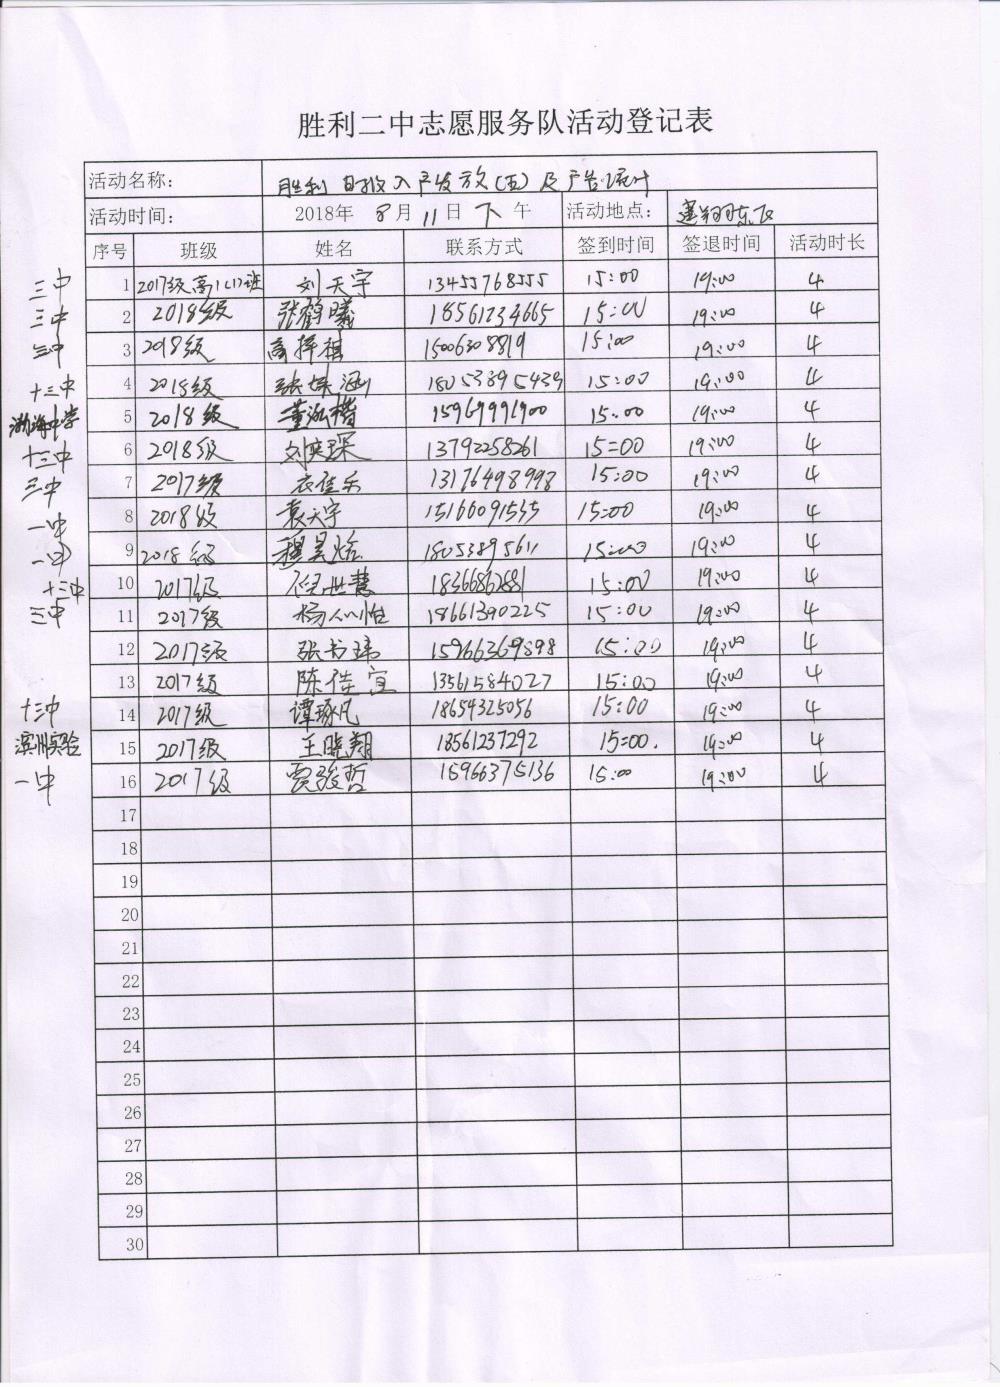 胜利二中志愿服务队活动登记表
活动名称: 胜利 日报入户发放(五)及广告
活动时间: 2018年 8月 11日 下午 活动地点:
序号 班级 姓名 联系方式 签到时间 签退时间 活动时长
三中 1 2017级高1(1)班 刘天宇 13455768555 15:00 19:00 4
三中 2 2018级 张鹤曦 18561234665 15:00 19:00 4
三中 3 2018级 高梓祺 15006308819 15:00 19:00 4
十三中 4 2018级 张姝涵 18053895439 15:00 19:00 4
渤海中学 5 2018级 董泓楷 15969991900 15:00 19:00 4
十三中 6 2018级 刘奕琛 13792258261 15:00 19:00 4
三中 7 2017级 衣佳乐 13176498998 15:00 19:00 4
一中 8 2018级 袁天宇 15166091535 15:00 19:00 4
一中 9 2018级 穆昊 18053895611 15:00 19:00 4
十三中 10 2017级 倪世慧 18366862881 15:00 19:00 4
三中 11 2017级 杨心怡 18661390225 15:00 19:00 4
12 2017级 张书玮 15966369898 15:00 19:00 4
13 2017级 陈佳宜 13561584027 15:00 19:00 4
十三中 14 2017级 谭琢凡 18654325056 15:00 19:00 4
滨州实验 15 2017级 王晓翔 18561237292 15:00. 19:00 4
一中 16 2017级 贾骏哲 15966375136 15:00 19:00 4
17
18
19
20
21
22
23
24
25
26
27
28
29
30